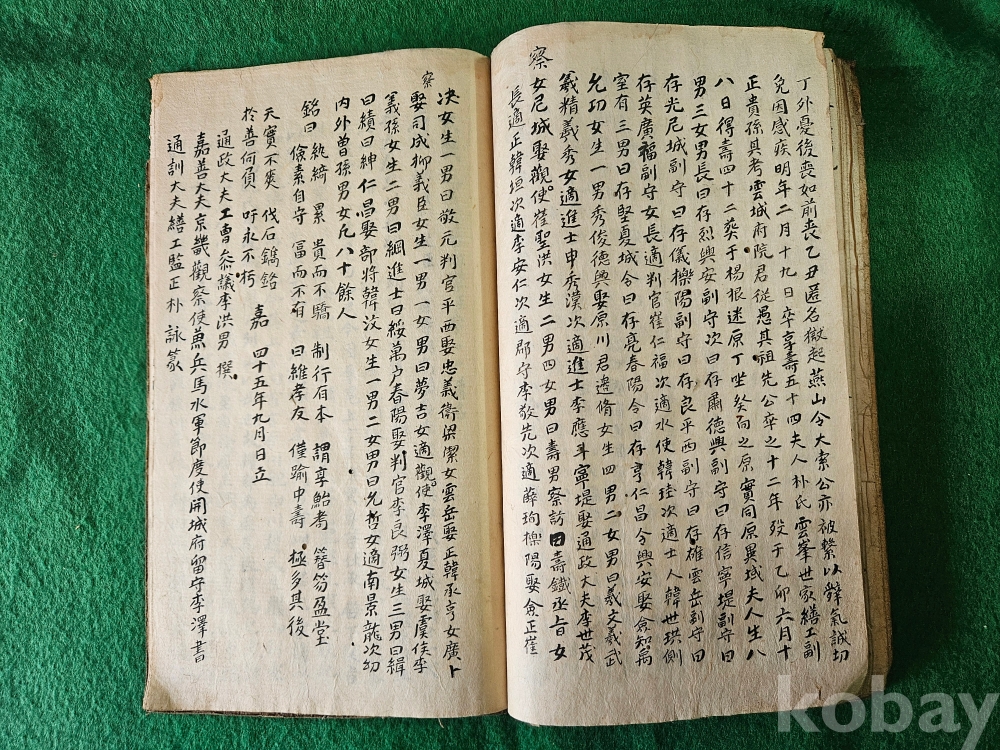 丁外憂後喪如前喪乙丑匿名獄起燕山令大索公亦被繫以辭氣誠切
免因感疾明年二月十九日卒享壽五十四夫人朴氏雲峯世家繕工副
正貴孫具考雲城府院君從愚其祖先公卒之十二年歿于乙卯六月十
八日得壽四十二葬于楊根迷原丁坐癸向之原實同原異域夫人生八
男三女男長曰存烈興安副守次曰存肅德興副守曰存信寧堤副守曰
存光尼城副守曰存儀櫟陽副守曰存良平西副守曰存確雲岳副守曰
存英廣福副守女長適判官崔仁福次適水使韓珪次適士人韓世珙側
室有三男曰存堅夏城令曰存亮春陽令曰存亨仁昌令興安娶僉知禹
允功女生一男秀俊德興娶原川君邊脩女生四男二女男曰義文義武
義精義秀女適進士申秀漢次適進士李應斗寧堤娶通政大夫李世茂
察
女尼城娶觀使崔聖洪女生二男四女男曰壽男察訪曰壽鐵丞旨女
長適正韓垣次適李安仁次適郡守李敬先次適薛珣櫟陽娶僉正崔
察
决女生一男曰敬元判官平西娶忠義衛梁潔女雲岳娶正韓承亨女廣卜
娶司成柳義臣女生一男一女男曰夢吉女適觀使李澤夏城娶虞侯李
義孫女生二男曰綱進士曰綏萬户春陽娶判官李良弼女生三男曰緝
曰績曰紳仁昌娶部將韓汶女生一男二女男曰允哲女適南景龍次幼
內外曾孫男女凡八十餘人
銘曰 紈綺 累 貴而不驕 制行有本 謂享鮐耇 簪笏盈堂
儉素自守 富而不有 曰維孝友 僅踰中壽 極多其後
天實不爽 伐石鐫銘 嘉 四十五年九月日立
於善何負 吁永不朽
通政大夫工曹叅議李洪男 撰
嘉善大夫京畿觀察使兼兵馬水軍節度使開城府留守李澤書
通訓大夫繕工監正朴 詠篆
kobay